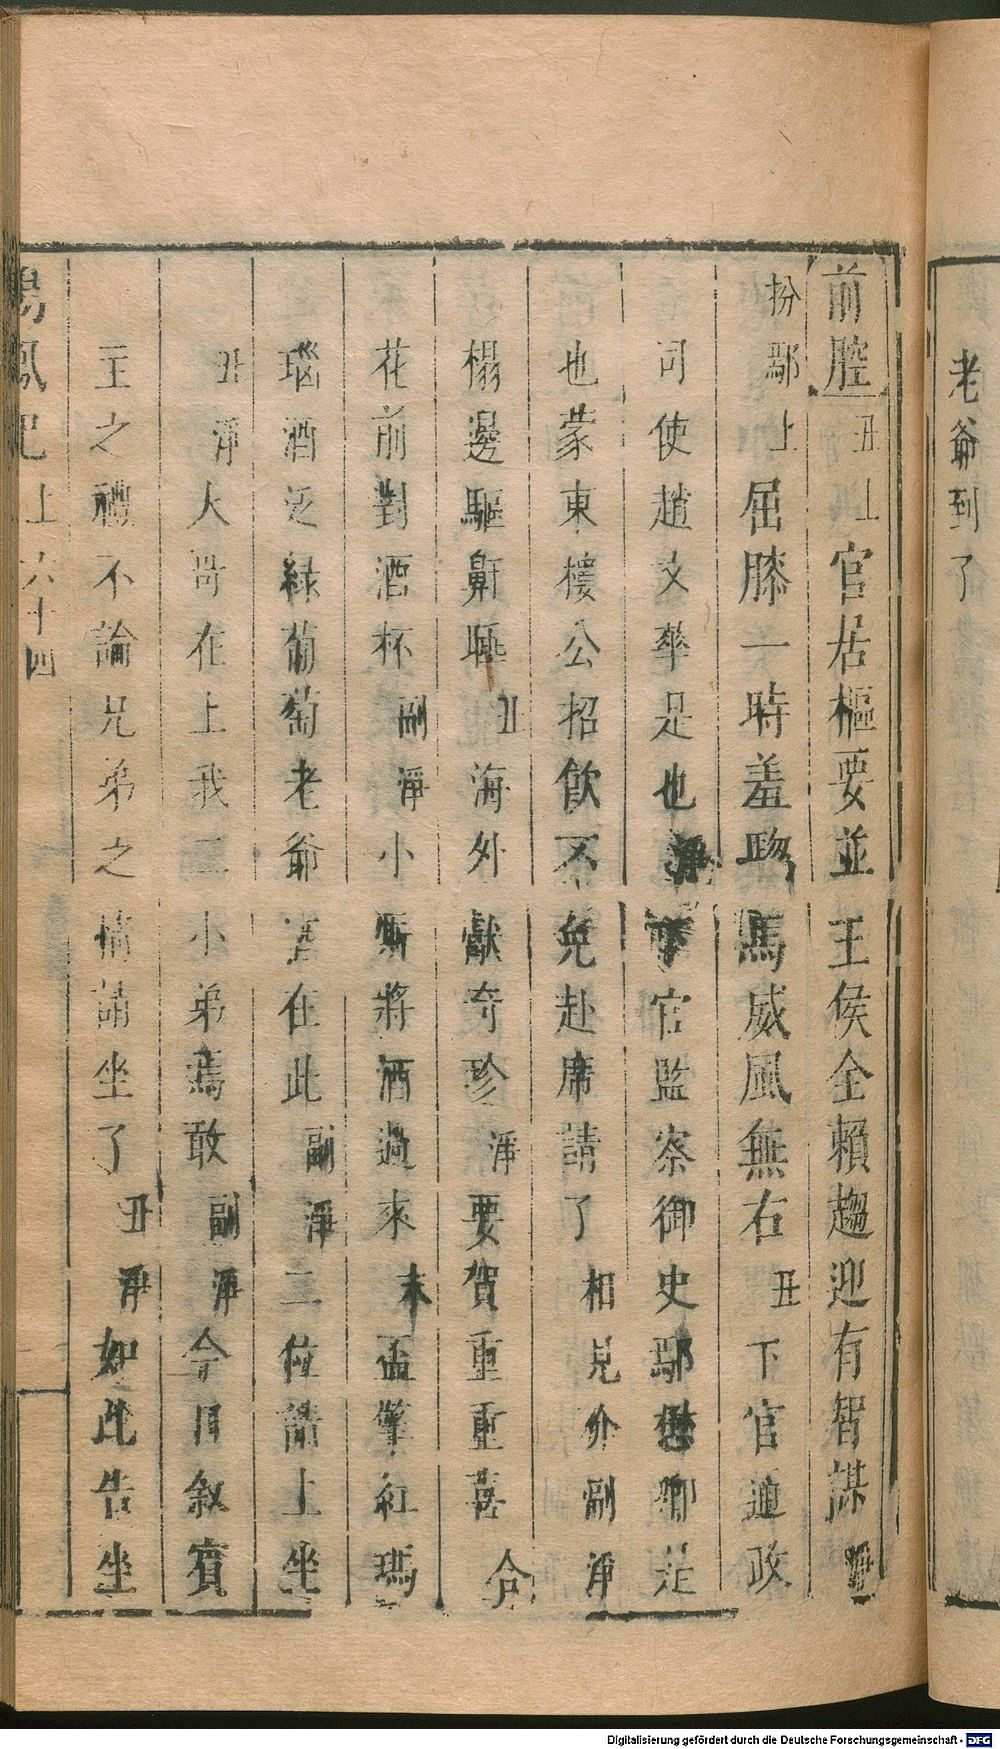 老爺到了
前腔丑上官居樞要並王侯全賴趨迎有智謀淨
扮鄢上屈膝一時羞驄馬威風無右丑下官通政
司使趙文華是也淨下官監察御史鄢懋卿是
也蒙東樓公招飲不免赴席請了相見介副淨
榻邊驅鼾睡丑海外獻奇珍淨要賀重重喜合
花前對酒杯副淨小厮將酒過來末盃擎紅瑪
瑙酒泛綠葡萄老爺酒在此副淨二位請上坐
丑淨大哥在上我二小弟焉敢副淨今日叙賓
主之禮不論兄弟之情請坐了丑淨如此告坐
鳴鳳記上六十四
Digitalisierung gefördert durch die Deutsche Forschungsgemeinschaft - DFG